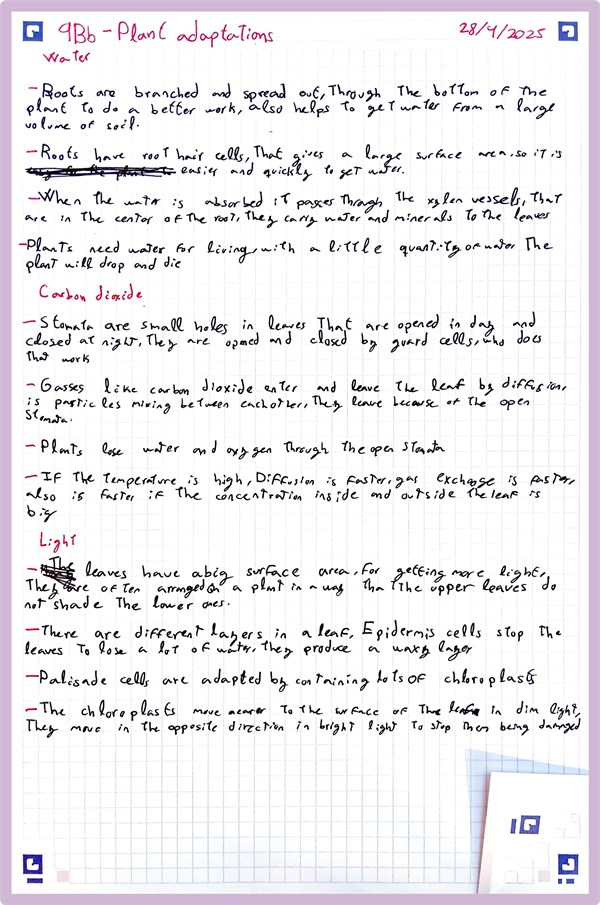 9Bb - Plant adaptations 28/4/2025
Water
- Roots are branched and spread out, Through The bottom of The
plant to do a better work, also helps to get water from a large
volume of soil.
- Roots have root hair cells, That gives a large surface area, so it is
easier and quickly to get water.
- When the water is absorbed it passes Through The xylen vessels, That
are in The center of the root, They carry water and minerals To the leaves
- Plants need water for living, with a little quantity of water The
plant will drop and die
Carbon dioxide
- Stomata are small holes in leaves That are opened in day and
closed at night, They are opened and closed by guard cells, who does
That work
- Gasses like carbon dioxide enter and leave the leaf by diffusion,
is particles mixing between eachother, They leave because of the open
Stomata.
- Plants lose water and oxygen through the open stomata
- If The Temperature is high, Diffusion is faster, gas exchange is faster,
also is faster if The concentration inside and outside the leaf is
big
Light
- leaves have a big surface area, For getting more light,
They are often arranged on a plant in a way that the upper leaves do
not shade The lower ones.
- There are different layers in a leaf, Epidermis cells stop The
leaves To lose a lot of water, they produce a waxy layer
- Palisade cells are adapted by containing lots of chloroplasts
- The chloroplasts move nearer To the surface of The leafe in dim light,
They move in the opposite direction in bright light To stop Them being damaged